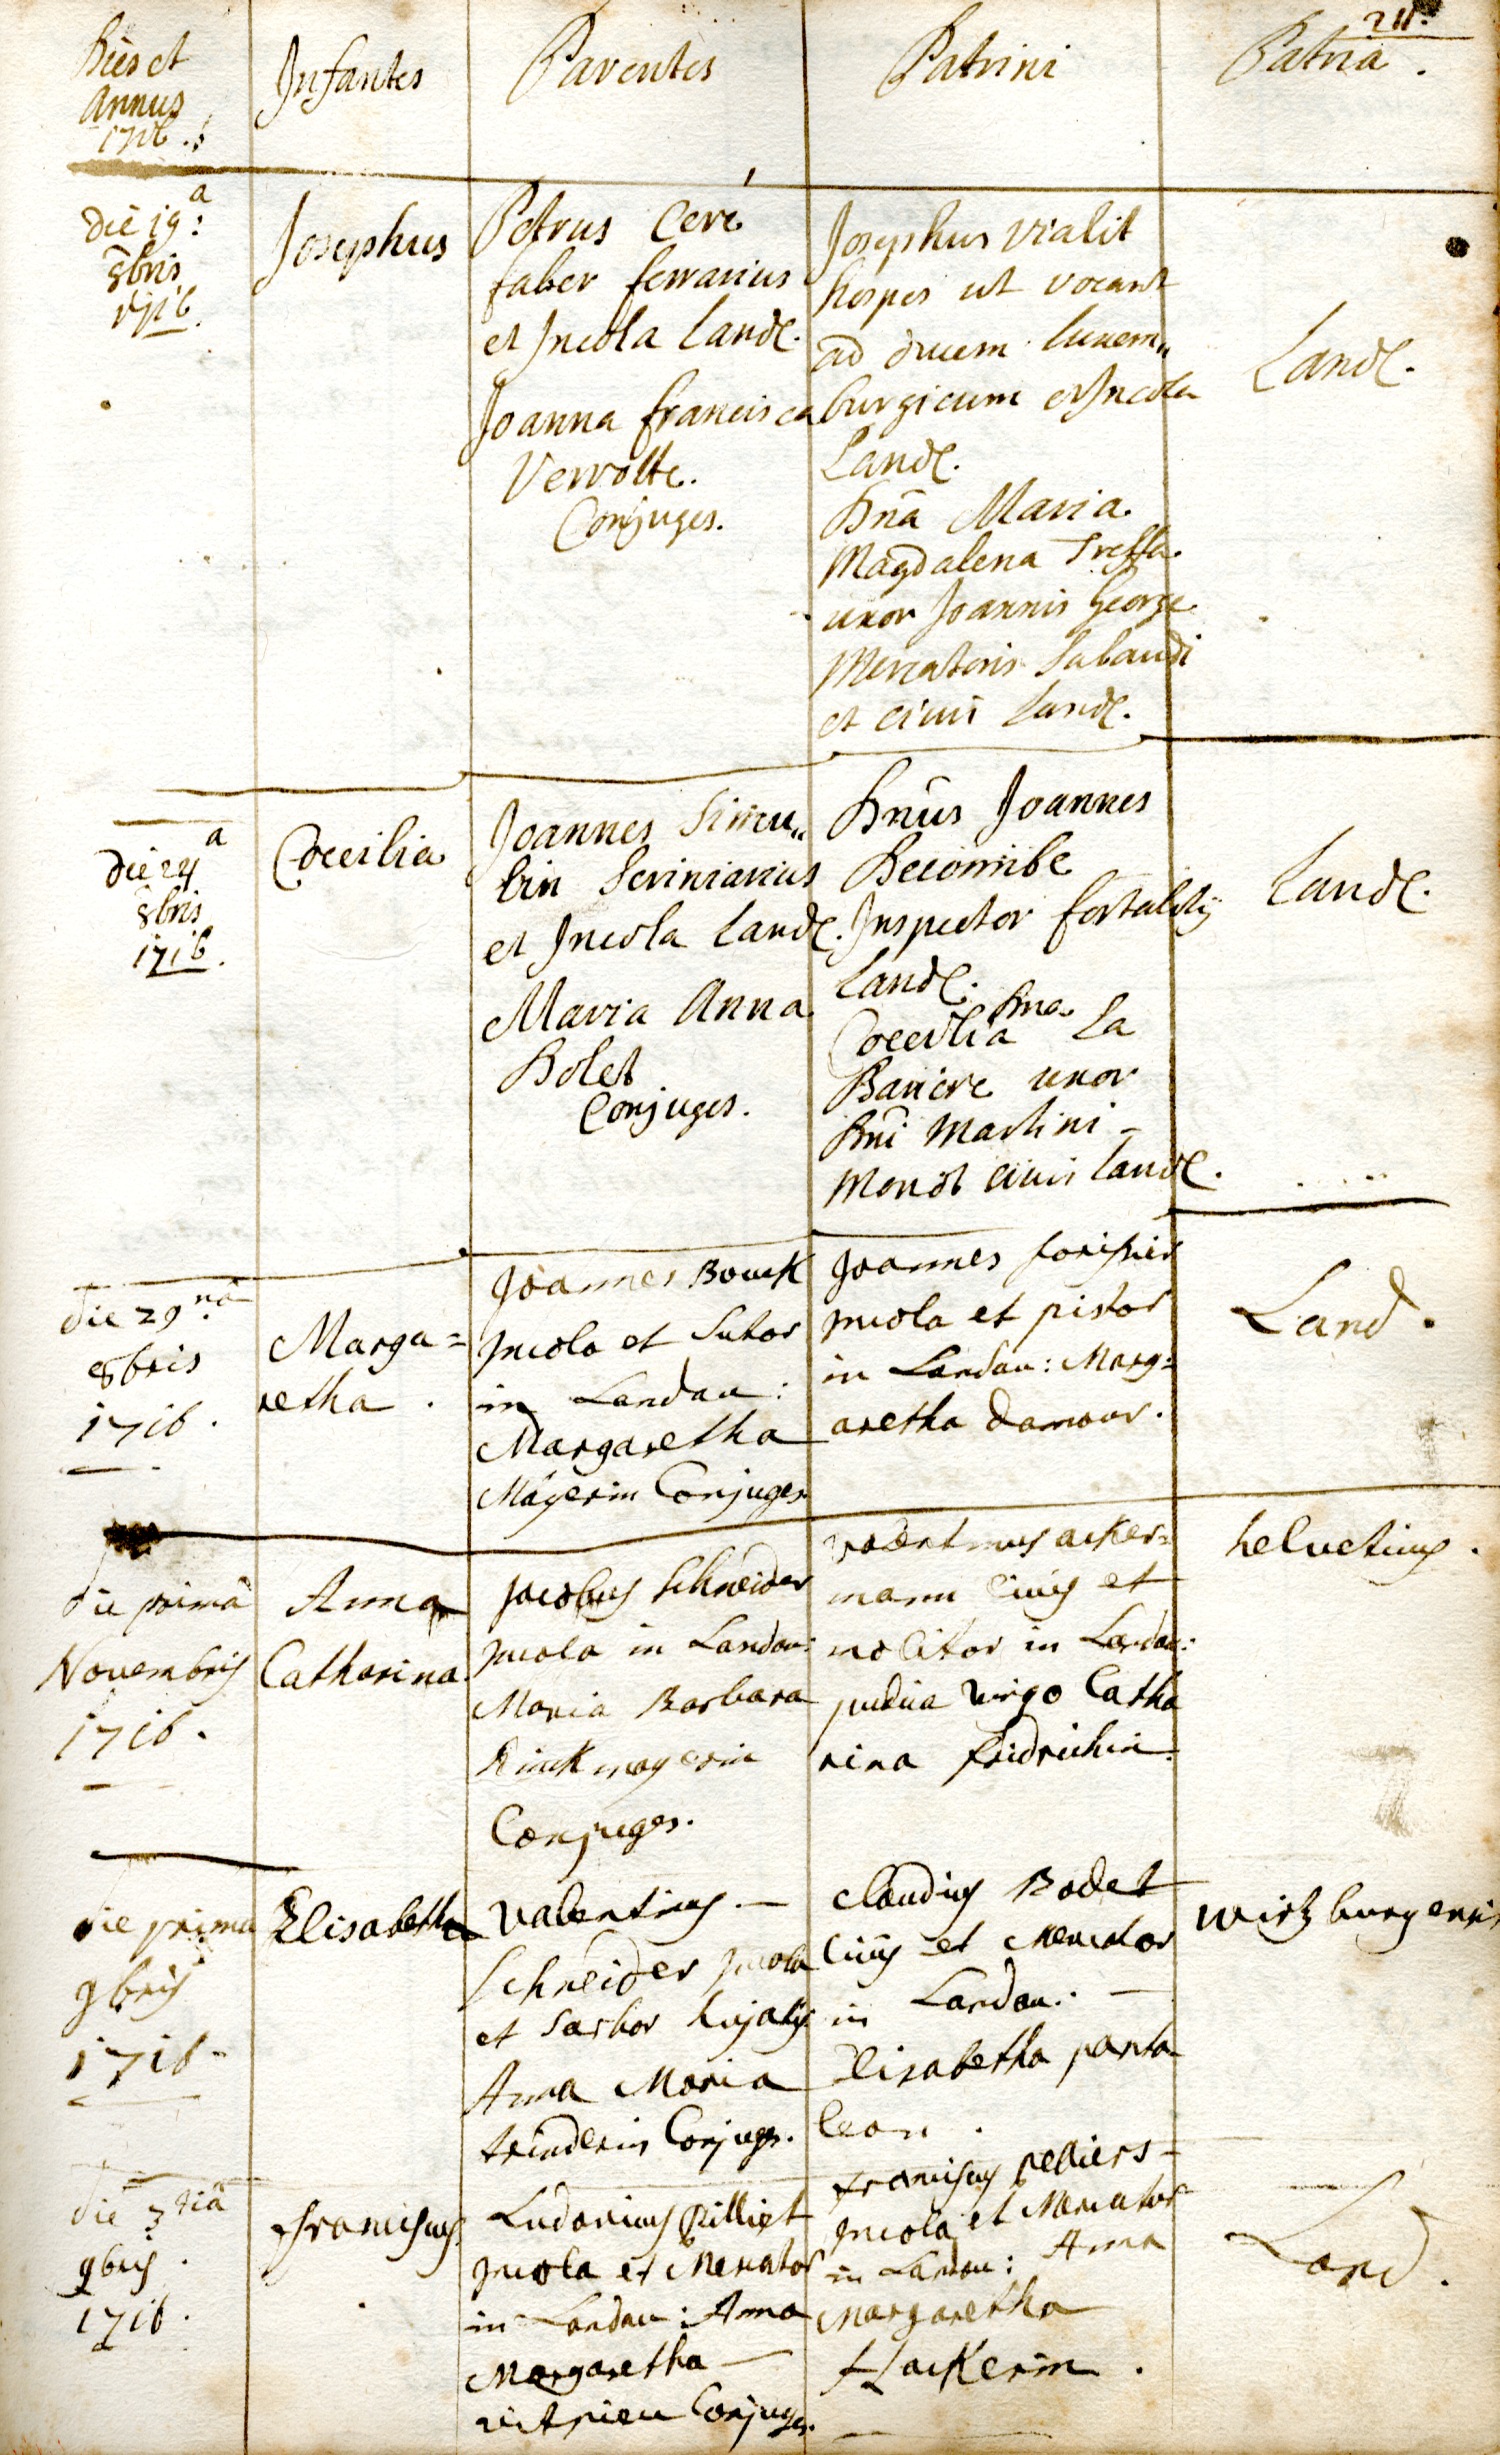 211.
Dies et
Annus
1716.
Infantes
Parentes
Patrini
Patria.
die 19.a
8bris
1716.
Josephus
Petrus Cere
faber ferrarius
et Incola Land.
Joanna francisca
Verrotte.
Conjuges.
Josephus Vialit
hospes ut vocant
ad ducem luxem„
burgicum et Incola
Land.
Dna Maria
Magdalena Treffa
uxor Joannis George
Mercatoris Sabaudi
et civis Land.
Land.
die 24 a
8bris
1716.
Coecilia
Joannes Simu„
lin Scriniarius
et Incola Land.
Maria Anna
Bolet
Conjuges.
Dnus Joannes
Decombe
Inspector fortalitij
Land.
Dna
Coecilia La
Bariere uxor
Dni Martini -
Mondt civis Land.
Land.
die 29.na
8bris
1716.
Marga=
retha.
Joannes Bouck
Incola et Sutor
in Landau:
Margaretha
Mäyerin Conjuges
Joannes
Incola et pistor
in Landau: Marg=
aretha damour.
Land.
die prima
Novembris
1716.
Anna
Catharina
Jacobus Schneider
Incola in Landau:
Maria Barbara
Rinckmayerin
Conjuges.
Valentinus acker=
mann civis et
molitor in Landau:
pudica virgo Catha
rina fridrichin.
helvetius.
die prima
9bris
1716.
Elisabetha
Valentinus —
Schneider Incola
et Sartor hujatis
Anna Maria
Conjuges.
Claudius Bodet
civis et Mercator
in Landau: —
Elisabetha panta
leon.
Wirtzburgensis
die 3 tia
9bris.
1716.
franciscus
Ludovicus Pilliet
Incola et Mercator
in Landau: Anna
Margaretha —
Conjuges.
franciscus pelliers -
Incola et Mercator
in Landau: Anna
Margaretha
Hackerin.
Land.